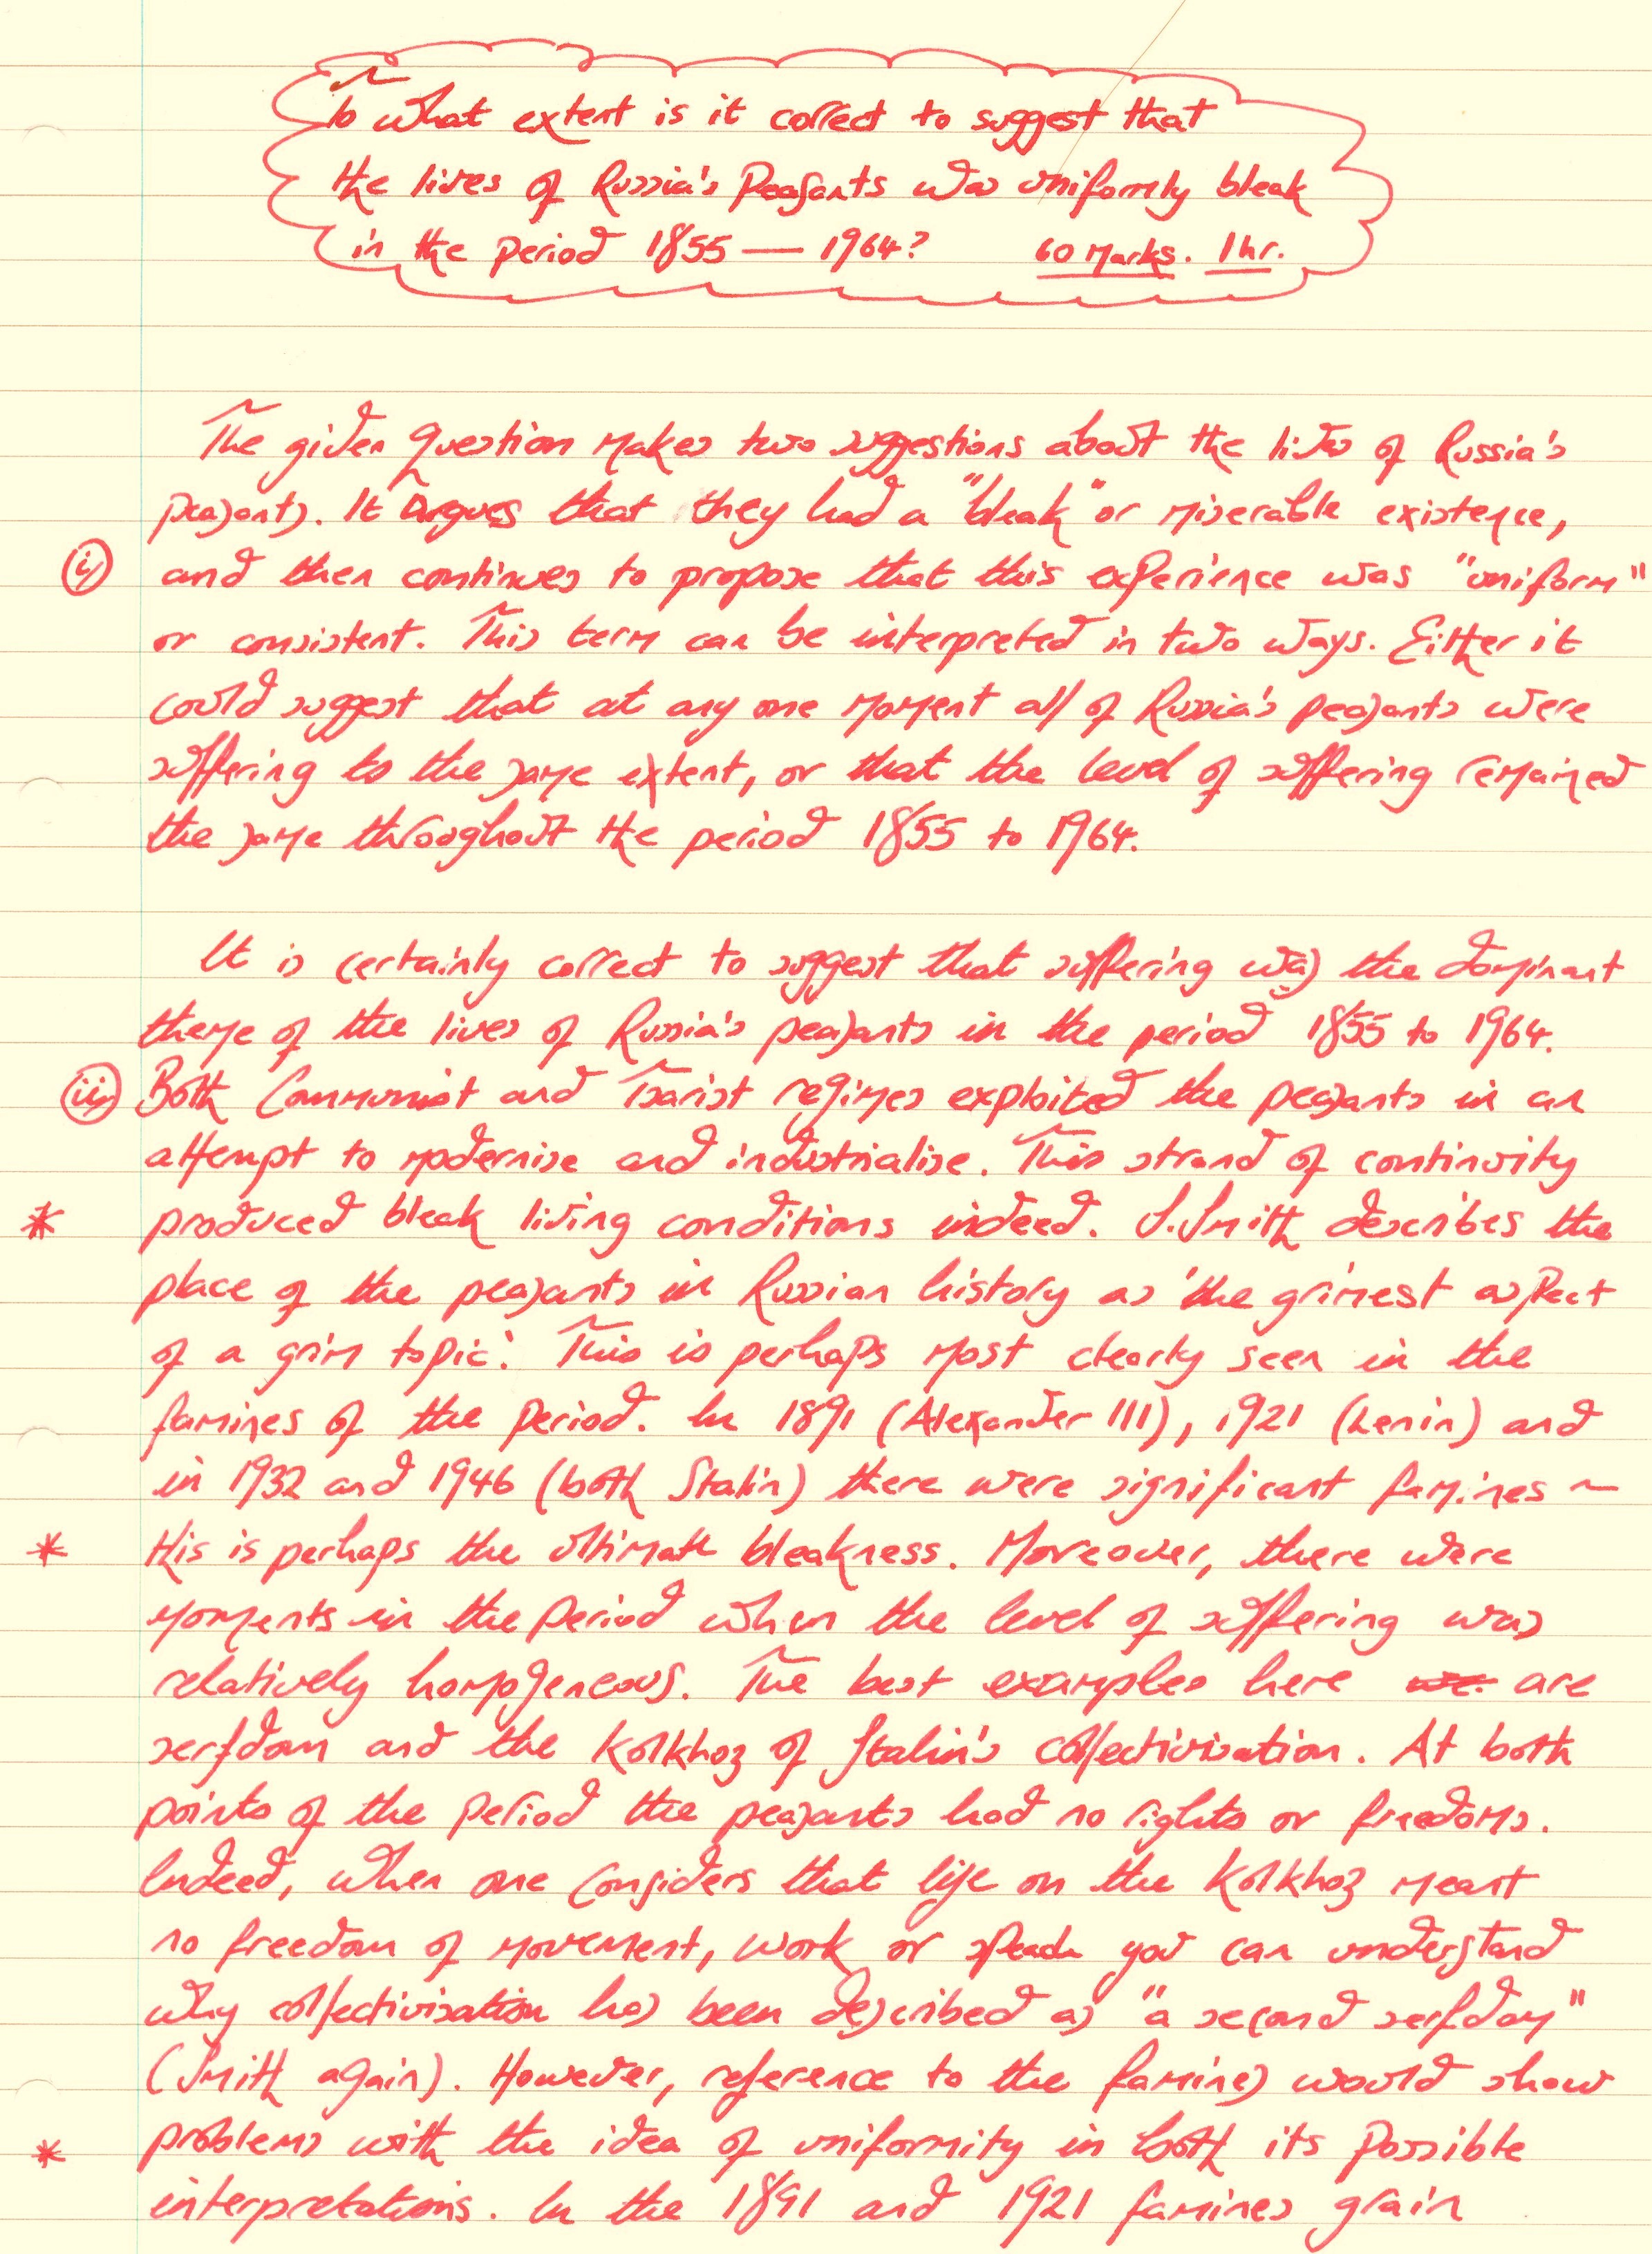 To what extent is it correct to suggest that
the lives of Russia's Peasants was uniformly bleak
in the period 1855 — 1964? 60 Marks. 1hr.
The given question makes two suggestions about the lives of Russia's
peasants. It argues that they had a "bleak" or miserable existence,
i) and then continues to propose that this experience was "uniform"
or consistent. This term can be interpreted in two ways. Either it
could suggest that at any one moment all of Russia's peasants were
suffering to the same extent, or that the level of suffering remained
the same throughout the period 1855 to 1964.
It is certainly correct to suggest that suffering was the dominant
theme of the lives of Russia's peasants in the period 1855 to 1964.
ii) Both Communist and Tsarist regimes exploited the peasants in an
attempt to modernise and industrialise. This strand of continuity
* produced bleak living conditions indeed. S.Smith describes the
place of the peasants in Russian history as 'the grimest aspect
of a grim topic'. This is perhaps most clearly seen in the
famines of the period. In 1891 (Alexander III), 1921 (Lenin) and
in 1932 and 1946 (both Stalin) there were significant famines ~
* this is perhaps the ultimate bleakness. Moreover, there were
moments in the period when the level of suffering was
relatively homogeneous. The best examples here are
serfdom and the Kolkhoz of Stalin's collectivisation. At both
points of the period the peasants had no rights or freedoms.
Indeed, when one considers that life on the Kolkhoz meant
no freedom of movement, work or speech you can understand
why collectivisation has been described as "a second serfdom"
(Smith again). However, reference to the famines would show
* problems with the idea of uniformity in both its possible
interpretations. In the 1891 and 1921 famines grain